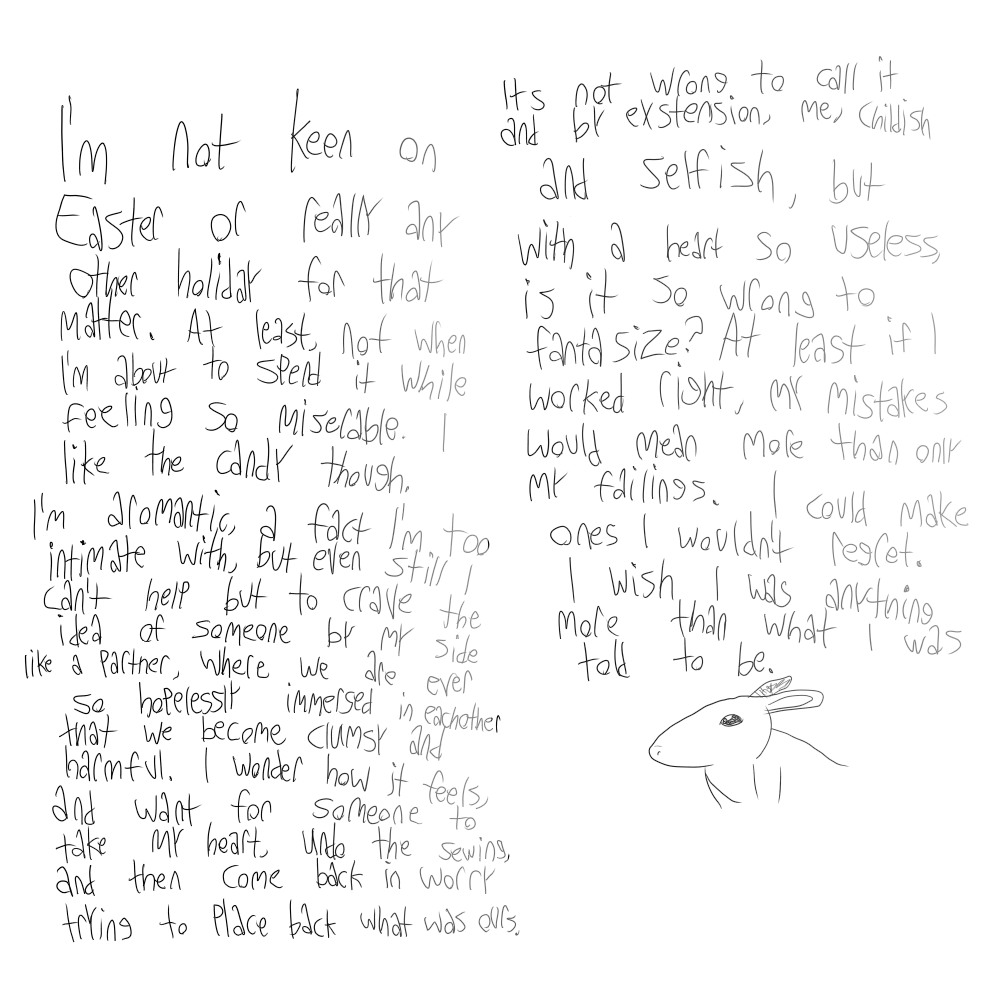 I'm not keen on
Easter or really any
other holiday for that
matter. At least, not when
I'm about to spend it while
feeling so miserable. I
like the candy though.
I'm aromantic, a fact I'm too
intimate with, but even still I
can't help but to crave the
idea of someone by my side
like a partner, where we are ever
so hopelessly immersed in eachother
that we become clumsy and
harmful. I wonder how it feels,
and want for someone to
take my heart, undo the sewing,
and then come back in worry
trying to place back what was ours.
Its not wrong to call it
and by exstension, me, childish
and selfish, but
with a heart so useless,
is it so wrong to
fantasize? At least if I
worked right, my mistakes
would mean more than only
my failings. I could make
ones I wouldn't regret.
I wish I was anything
more than what I was
told to be.